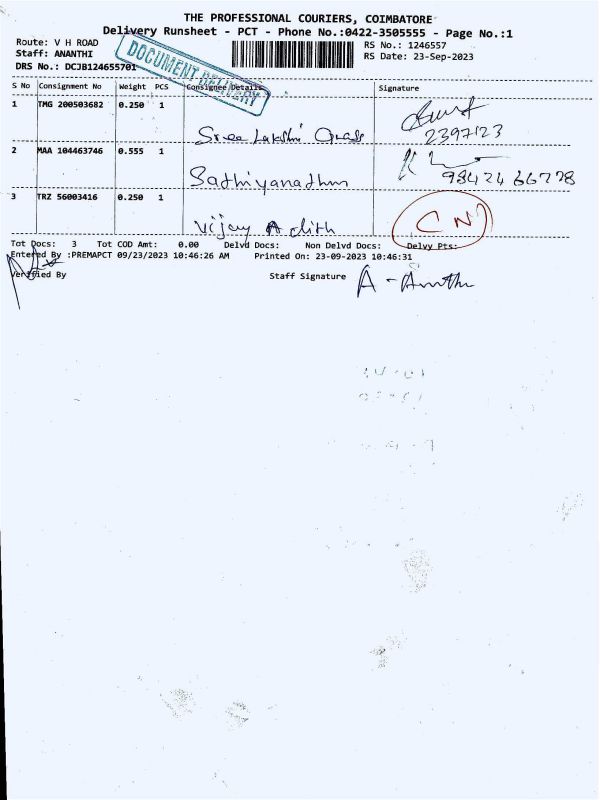 THE PROFESSIONAL COURIERS, COIMBATORE
Delivery Runsheet - PCT - Phone No.:0422-3505555 - Page No.:1
Route: V H ROAD
Staff: ANANTHI
DRS No.: DCJB124655701
DOCUMENT DELIVERY
RS No.: 1246557
RS Date: 23-Sep-2023
S No Consignment No Weight PCS Consignee Details Signature
1 TMG 200503682 0.250 1
Sree Lakshmi Grass 2397123
2 MAA 104463746 0.555 1
Sathiyanathan 98424 66778
3 TRZ 56003416 0.250 1
Vijay Adith CN7
Tot Docs: 3 Tot COD Amt: 0.00 Delvd Docs: Non Delvd Docs: Delvy Pts:
Entered By :PREMAPCT 09/23/2023 10:46:26 AM Printed On: 23-09-2023 10:46:31
Verified By Staff Signature A-Ananthi